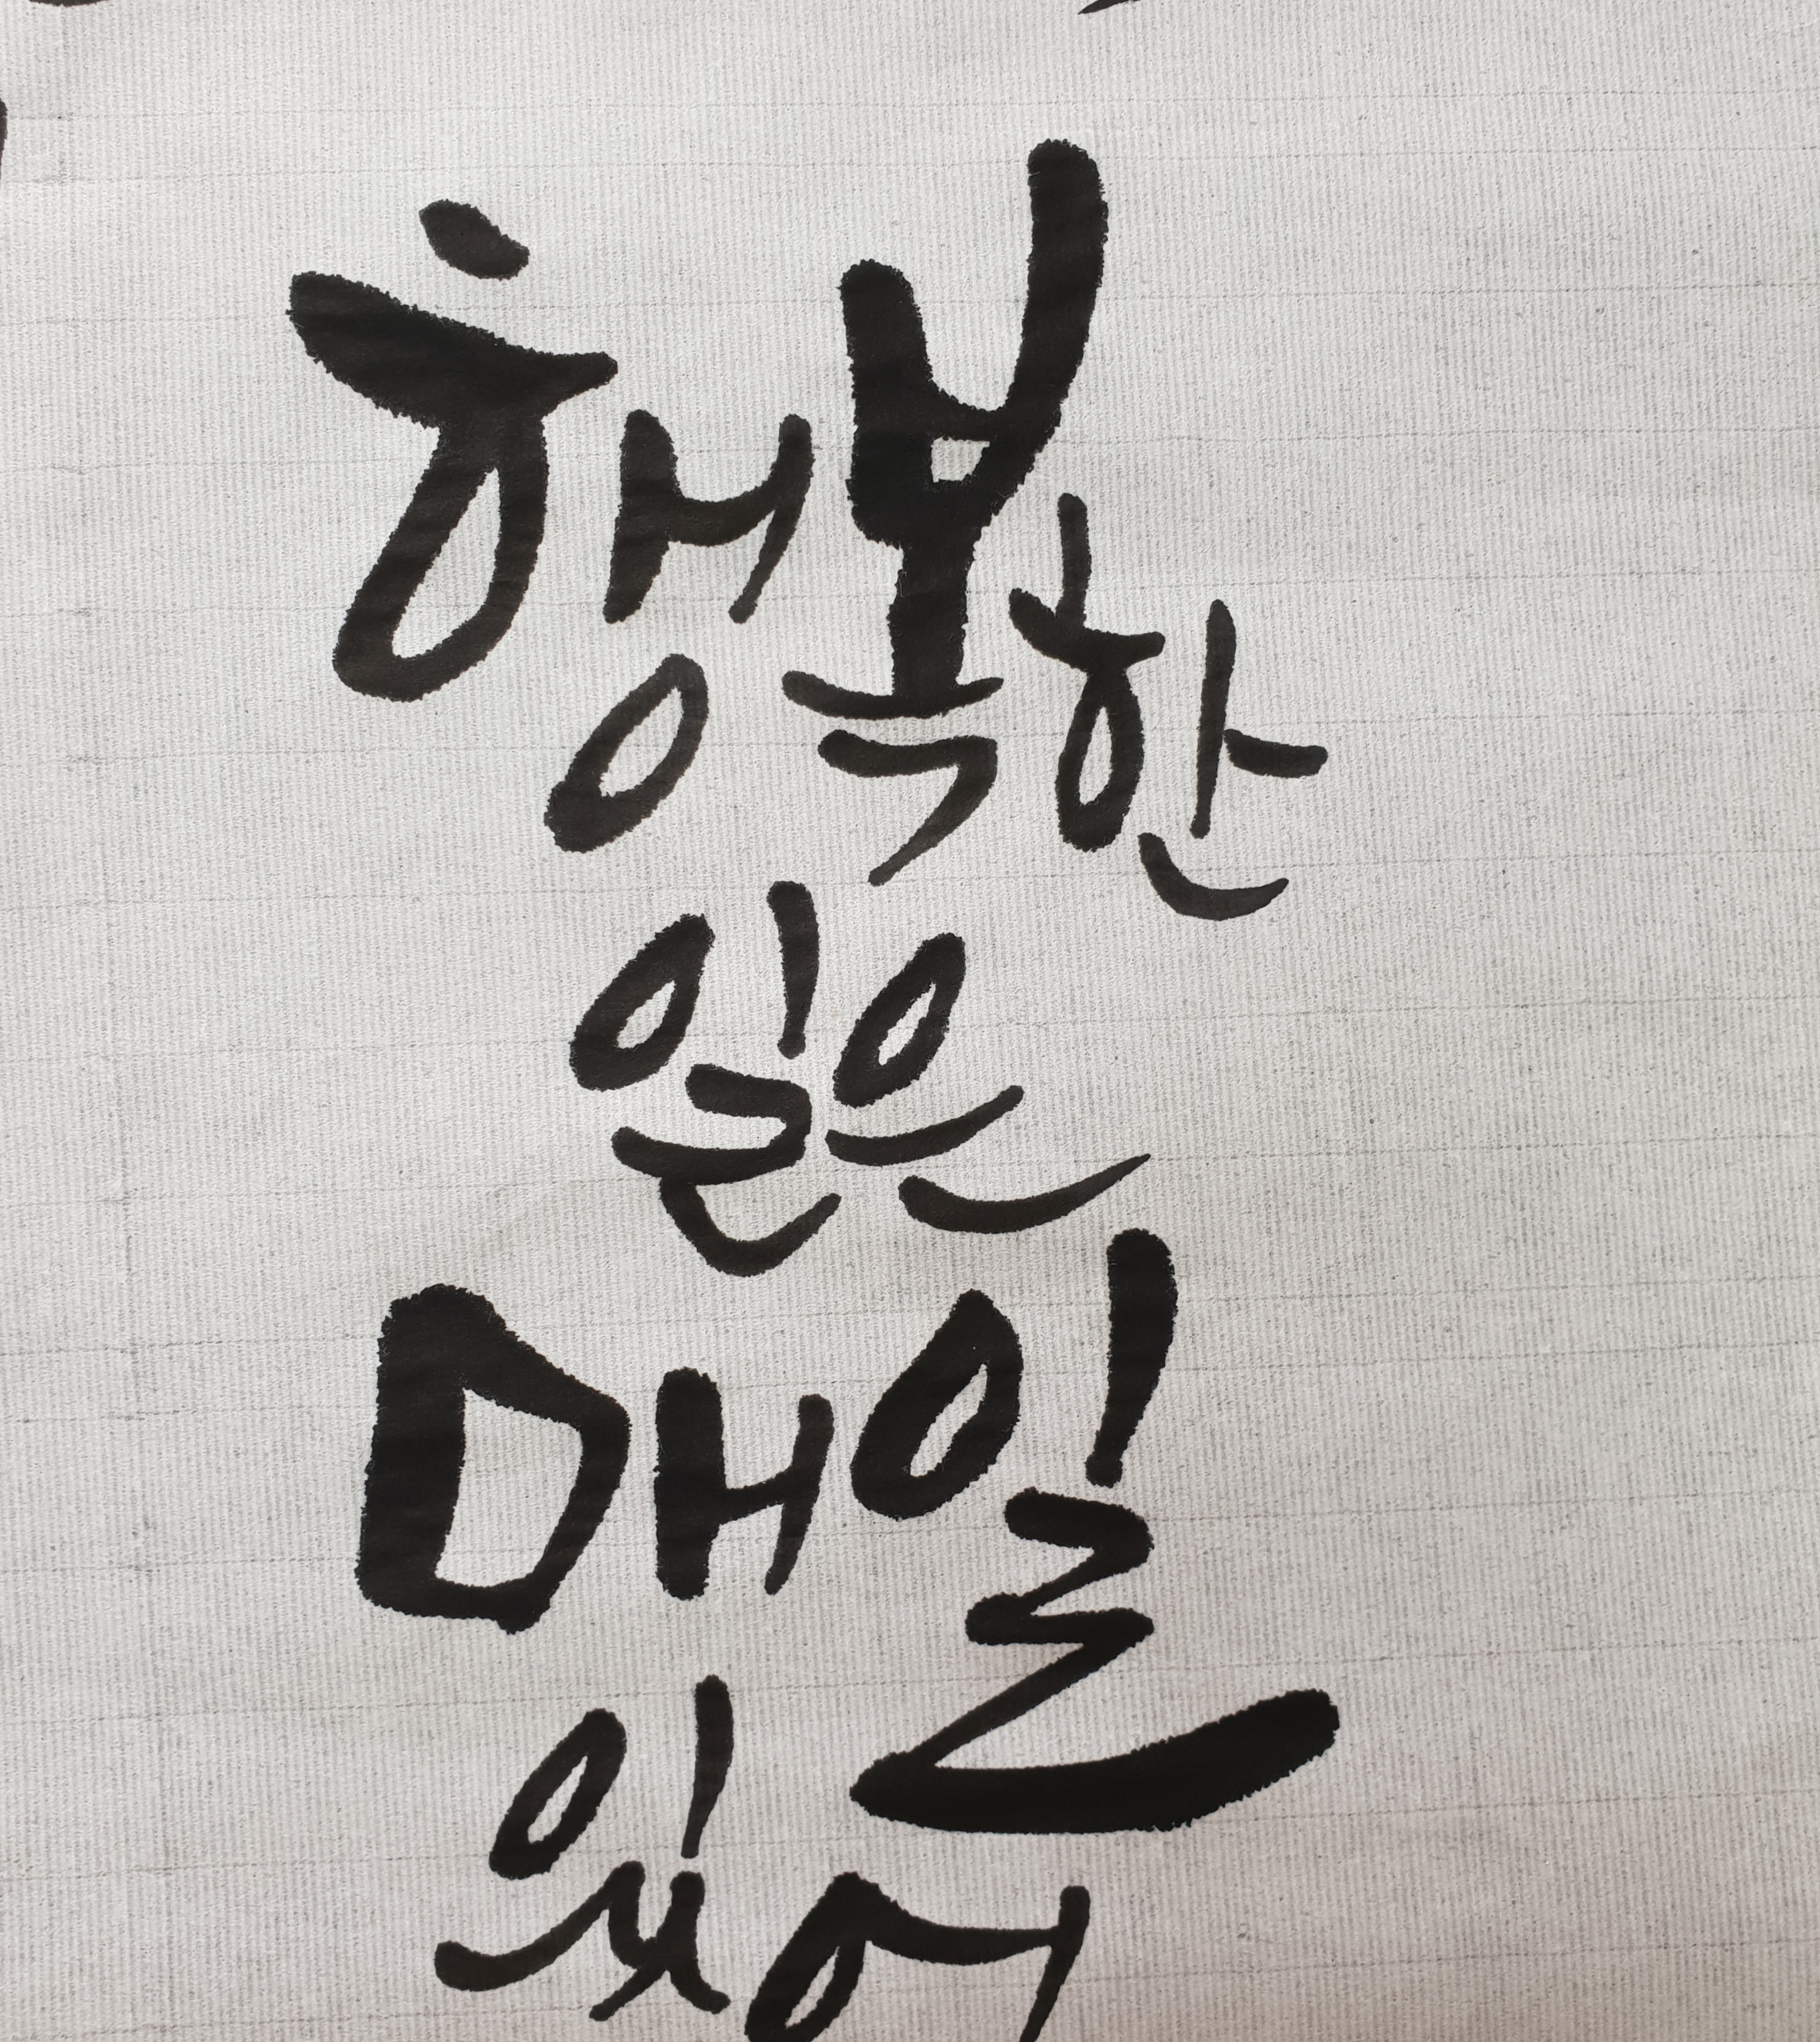 행복한
일은
매일
있어